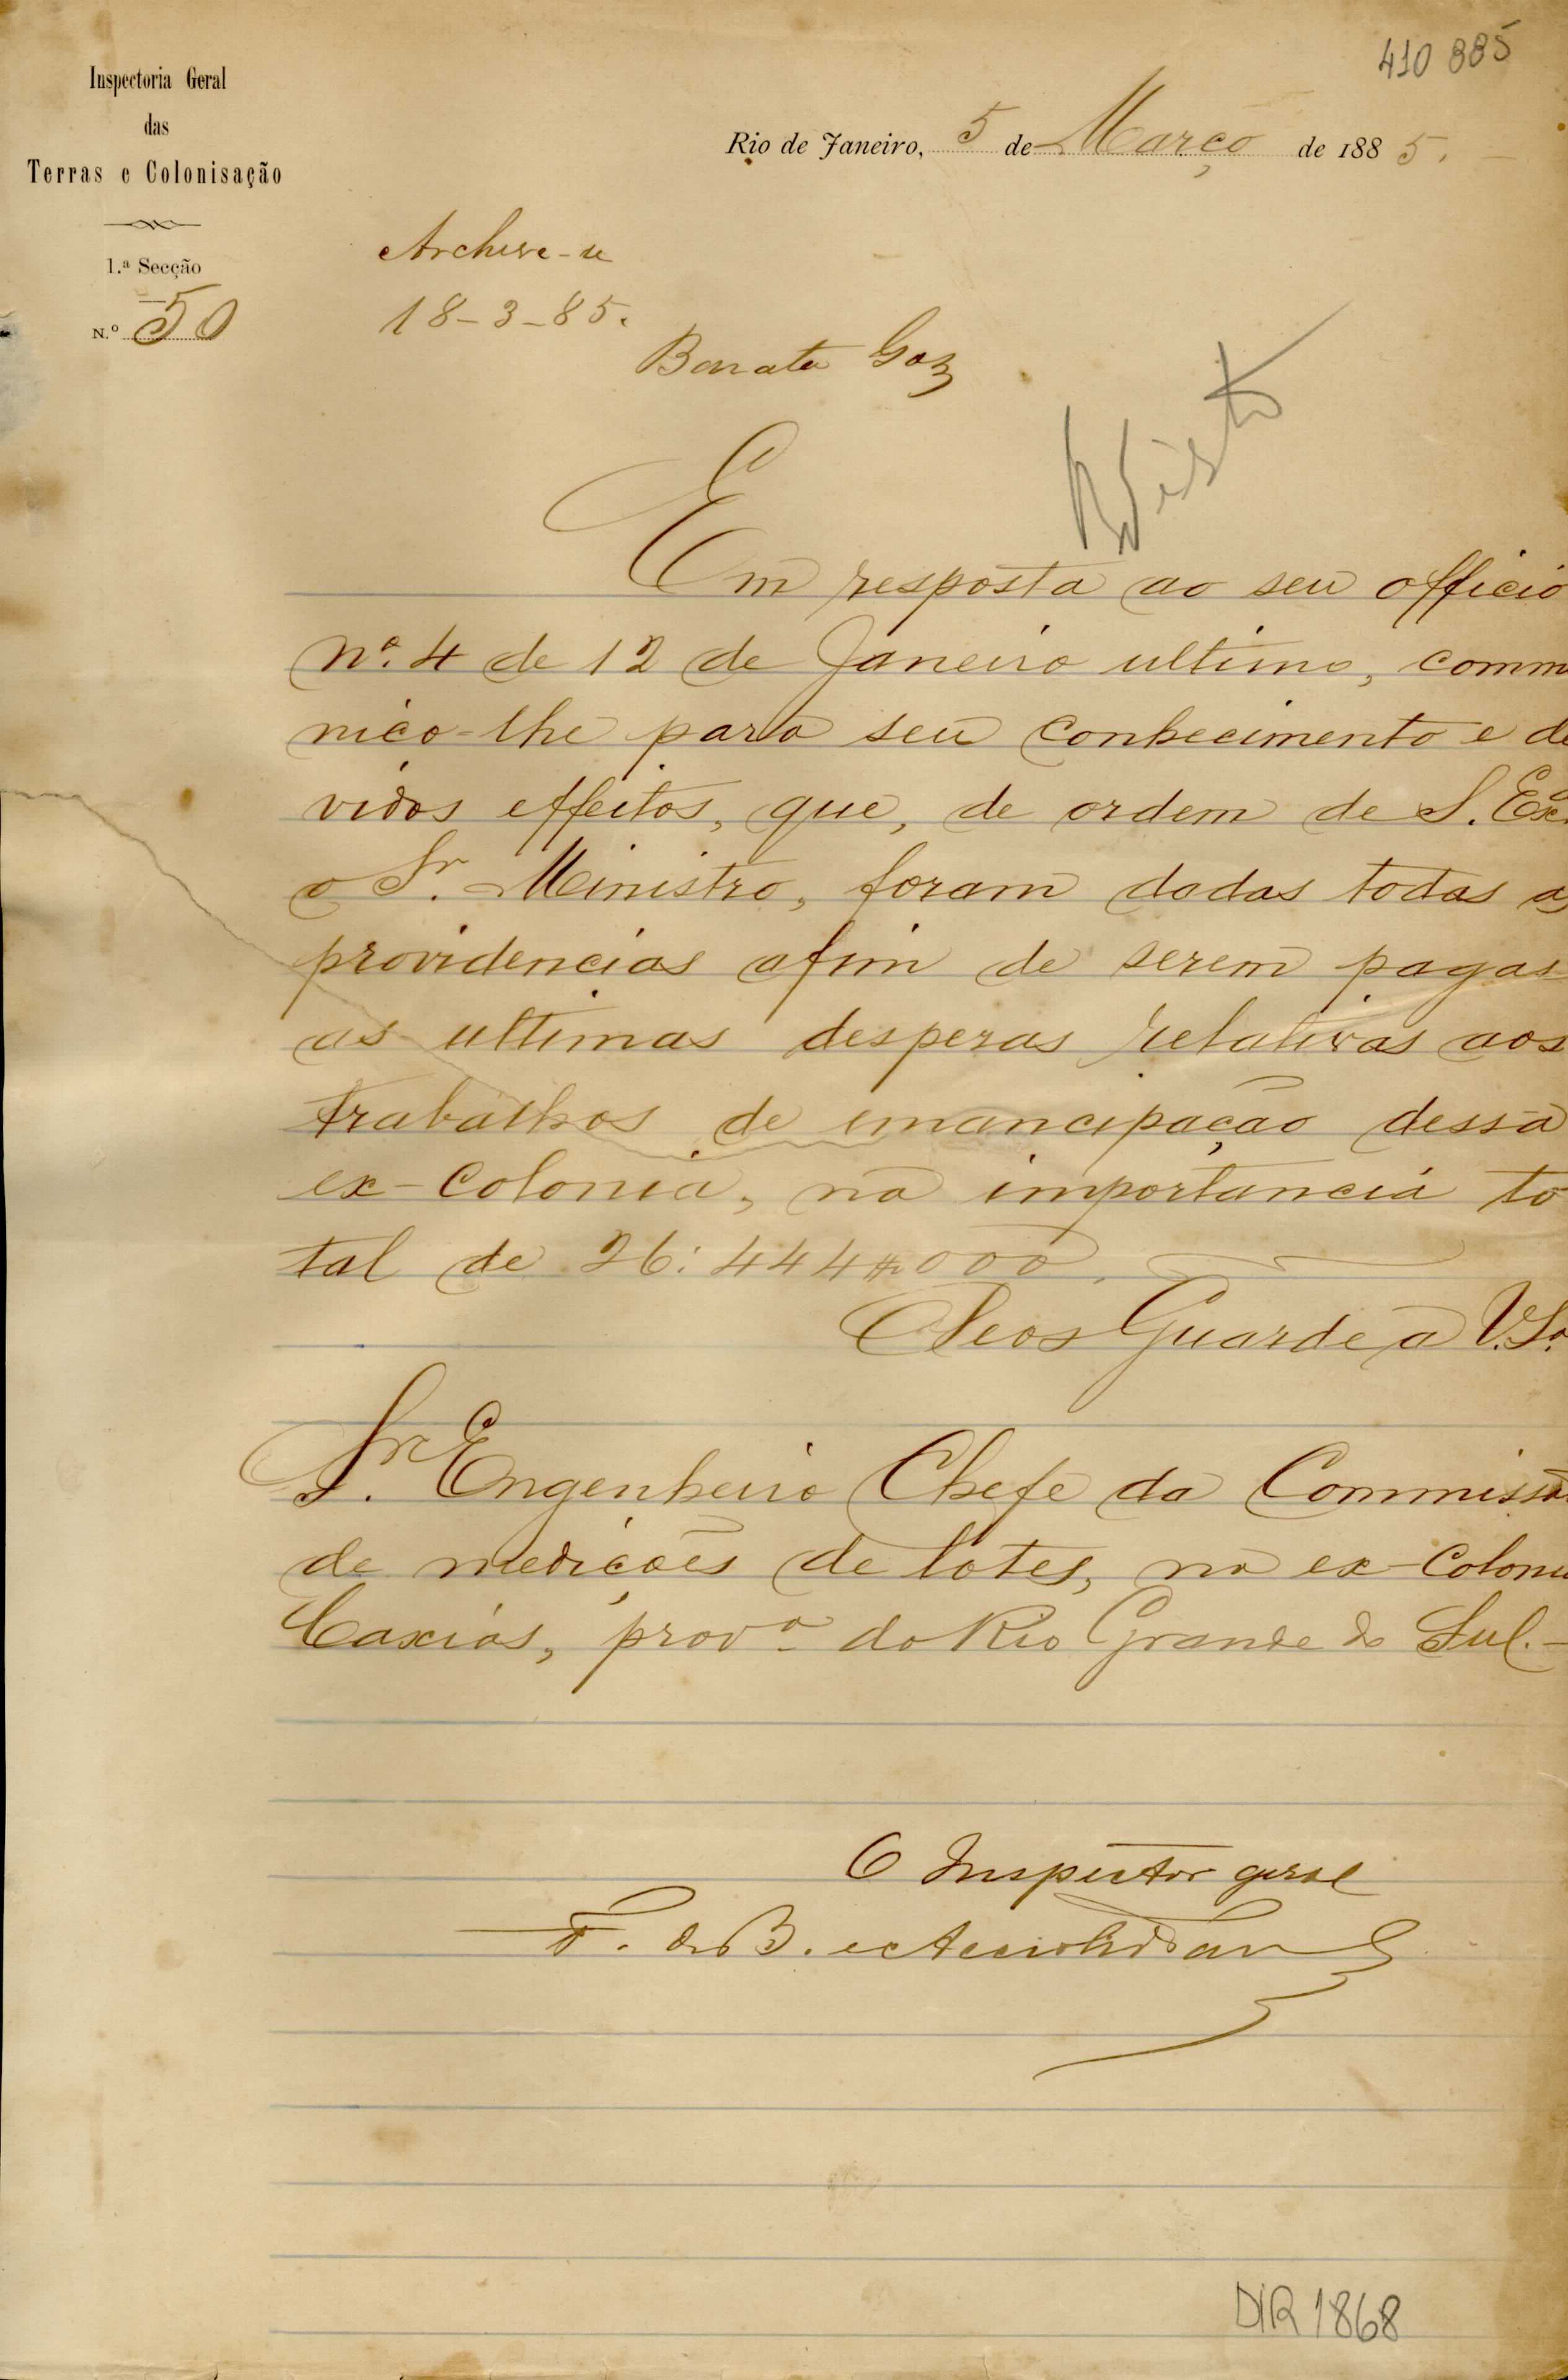 410 885
Inspectoria Geral
das
Terras e Colonisação
1.ª Secção
N.º 50
Rio de Janeiro, 5 de Março de 1885.
Archive-se
18-3-85.
Barata Goz
Visto
Em resposta ao seu officio
nº. 4 de 12 de Janeiro ultimo, commu
nico-lhe para seu conhecimento e de
vidos effeitos, que, de ordem de S. Exª
o Sr. Ministro, foram dadas todas as
providencias afim de serem pagas
as ultimas despezas relativas aos
trabalhos de emancipação dessa
ex-colonia, na importancia to
tal de 26:444$000.
Deos Guarde a V.Sª.
Sr. Engenheiro Chefe da Commissão
de medições de lotes, na ex-Colonia
Caxias, provª do Rio Grande do Sul.-
O Inspector geral
F. de B. e Accioli de
DIR 1868